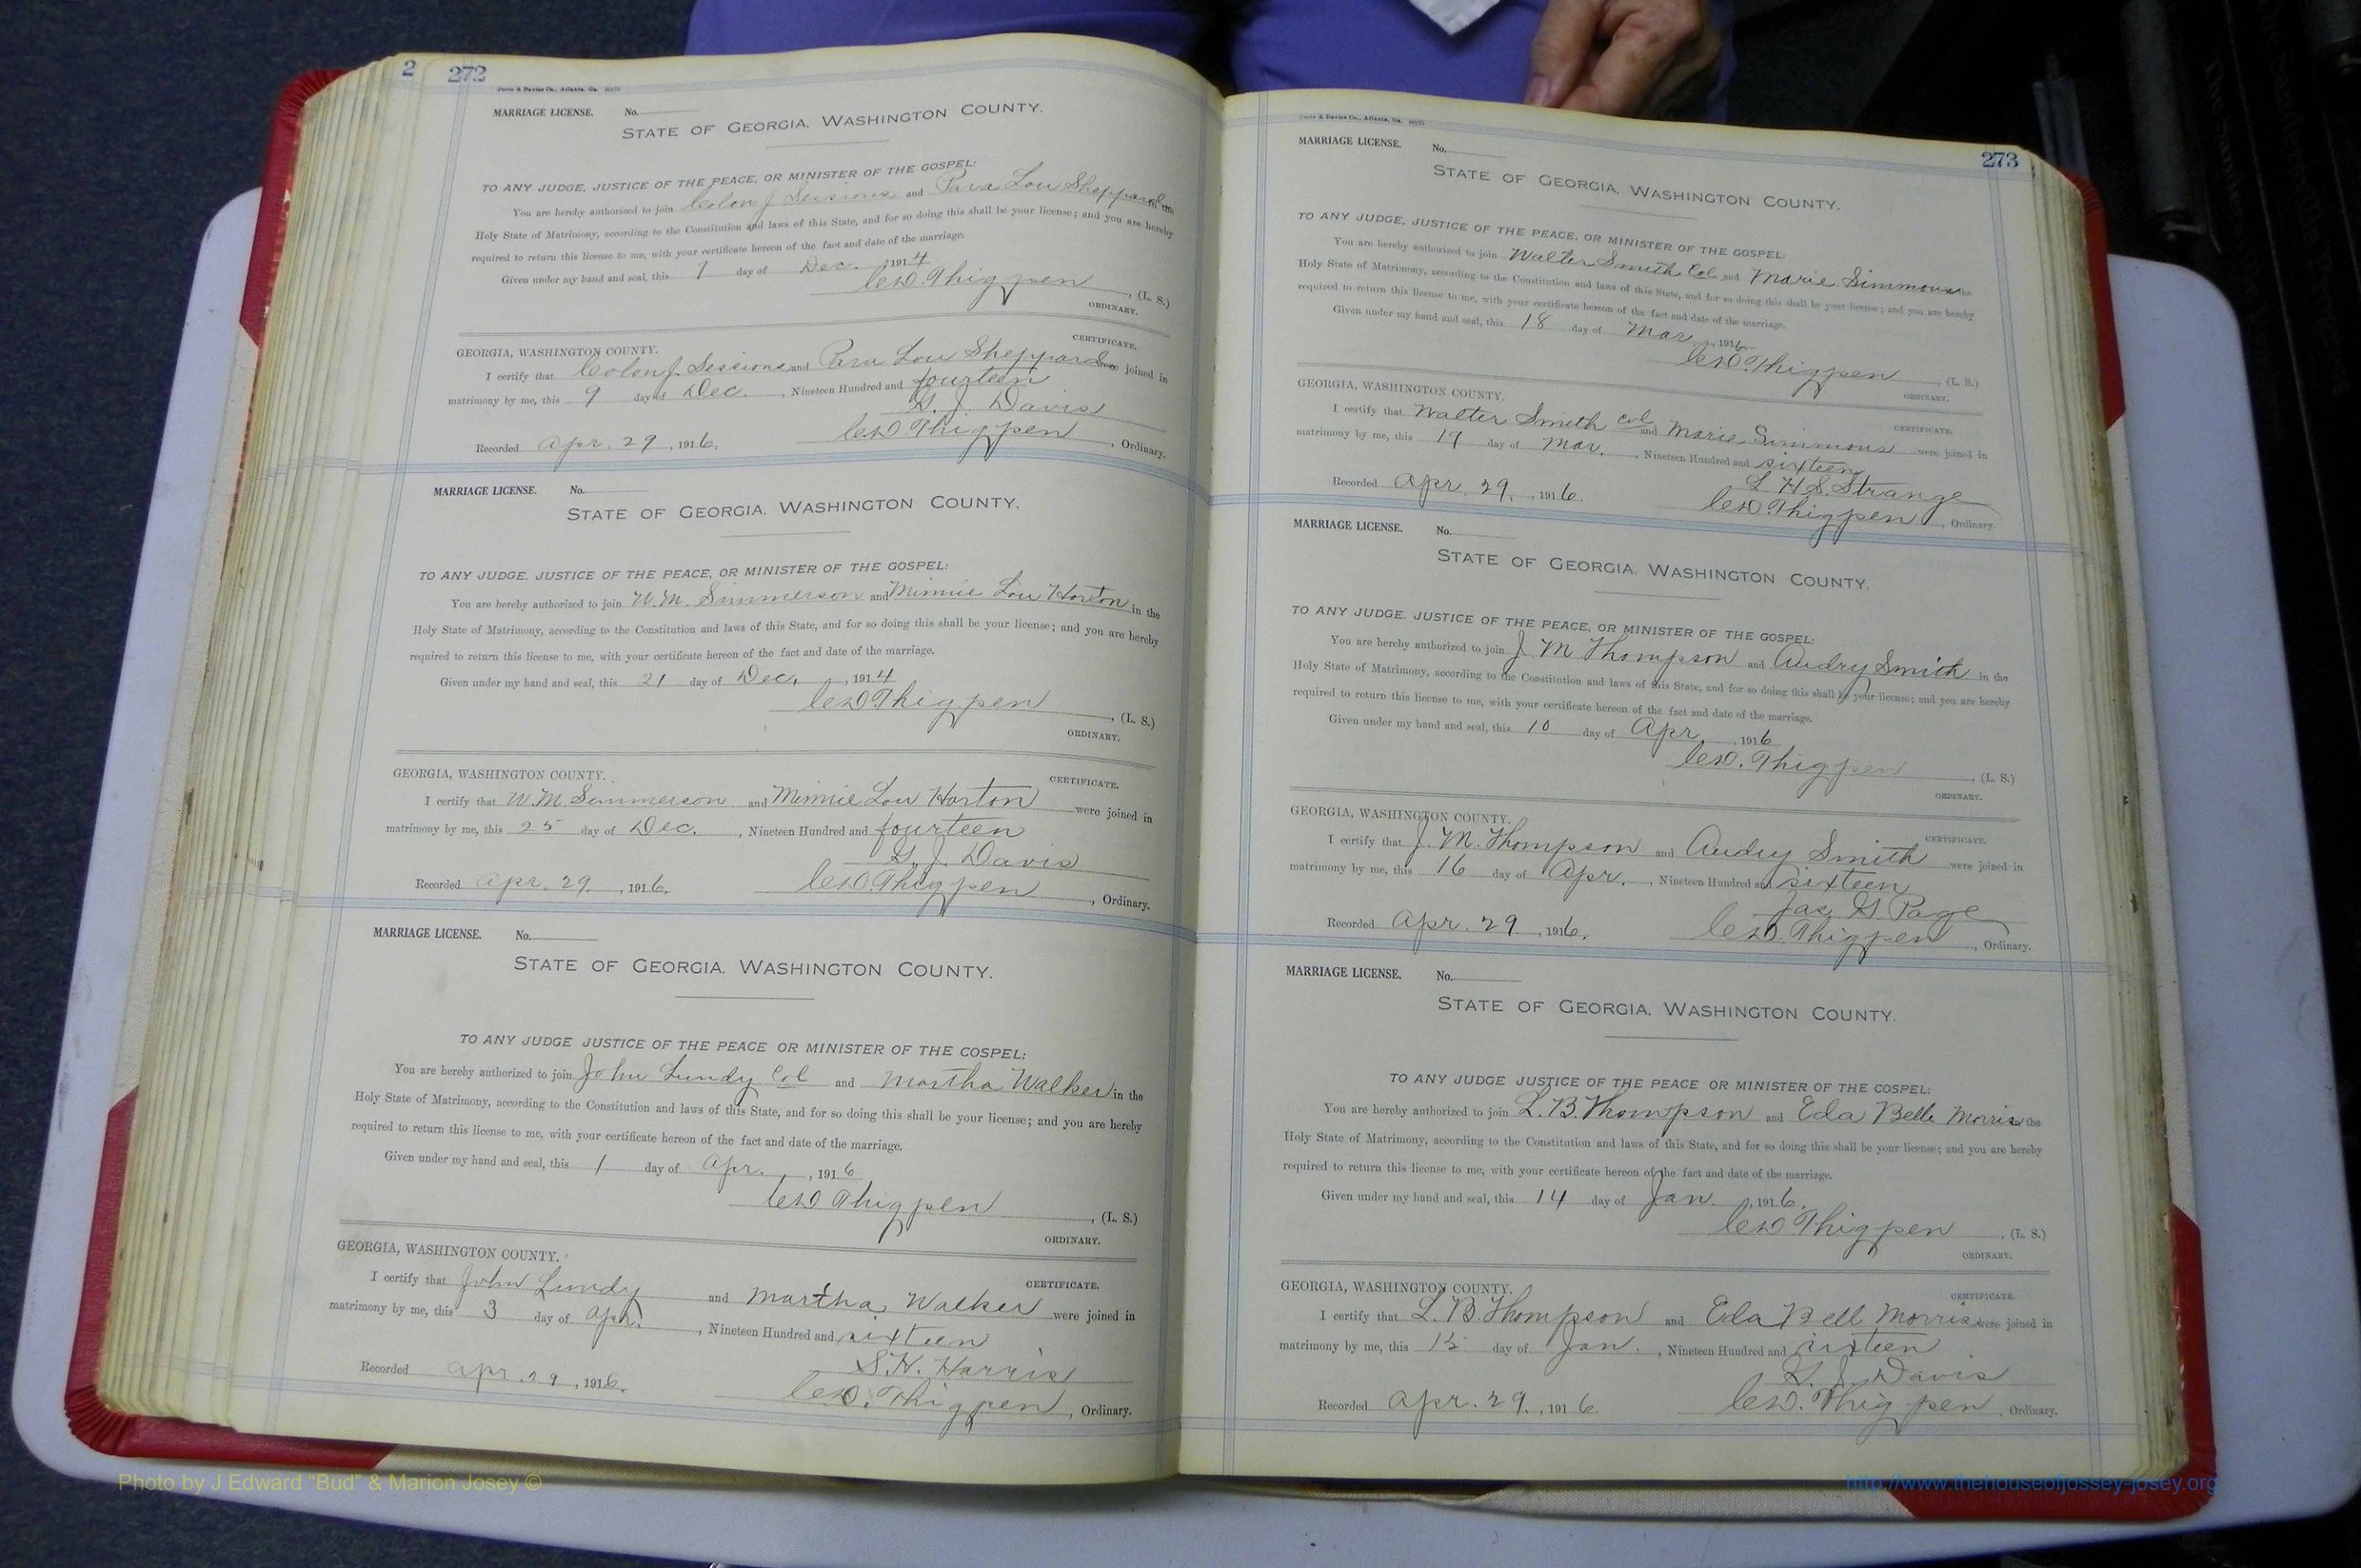 2 272
MARRIAGE LICENSE. No.
STATE OF GEORGIA, WASHINGTON COUNTY.
TO ANY JUDGE, JUSTICE OF THE PEACE, OR MINISTER OF THE GOSPEL:
You are hereby authorized to join Colon J Sessions and Para Lou Sheppard in the
Holy State of Matrimony, according to the Constitution and laws of this State, and for so doing this shall be your license; and you are hereby
required to return this license to me, with your certificate hereon of the fact and date of the marriage.
Given under my hand and seal, this day of Dec. , 1914
Thigpen , (L. S.)
ORDINARY.
GEORGIA, WASHINGTON COUNTY. CERTIFICATE.
I certify that Colon J. Sessions and Para Lou Sheppard were joined in
matrimony by me, this 9 day of Dec. , Nineteen Hundred and fourteen
G. J. Davis
Recorded Apr. 29 , 1916. Thigpen , Ordinary.
MARRIAGE LICENSE. No.
STATE OF GEORGIA, WASHINGTON COUNTY.
TO ANY JUDGE, JUSTICE OF THE PEACE, OR MINISTER OF THE GOSPEL:
You are hereby authorized to join W. M. Simmerson and Minnie Lou Horton in the
Holy State of Matrimony, according to the Constitution and laws of this State, and for so doing this shall be your license; and you are hereby
required to return this license to me, with your certificate hereon of the fact and date of the marriage.
Given under my hand and seal, this 21 day of Dec. , 1914
Thigpen , (L. S.)
ORDINARY.
GEORGIA, WASHINGTON COUNTY. CERTIFICATE.
I certify that W. M. Simmerson and Minnie Lou Horton were joined in
matrimony by me, this 25 day of Dec. , Nineteen Hundred and fourteen
G. J. Davis
Recorded Apr. 29. , 1916. Thigpen , Ordinary.
MARRIAGE LICENSE. No.
STATE OF GEORGIA, WASHINGTON COUNTY.
TO ANY JUDGE JUSTICE OF THE PEACE OR MINISTER OF THE GOSPEL:
You are hereby authorized to join John Lundy Col and Martha Walker in the
Holy State of Matrimony, according to the Constitution and laws of this State, and for so doing this shall be your license; and you are hereby
required to return this license to me, with your certificate hereon of the fact and date of the marriage.
Given under my hand and seal, this 1 day of Apr. , 1916
Thigpen , (L. S.)
ORDINARY.
GEORGIA, WASHINGTON COUNTY. CERTIFICATE.
I certify that John Lundy and Martha Walker were joined in
matrimony by me, this 3 day of Apr. , Nineteen Hundred and sixteen
S. H. Harris
Recorded Apr. 29 , 1916. Thigpen , Ordinary.
273
MARRIAGE LICENSE. No.
STATE OF GEORGIA, WASHINGTON COUNTY.
TO ANY JUDGE, JUSTICE OF THE PEACE, OR MINISTER OF THE GOSPEL:
You are hereby authorized to join Walter Smith Col and Marie Simmons the
Holy State of Matrimony, according to the Constitution and laws of this State, and for so doing this shall be your license; and you are hereby
required to return this license to me, with your certificate hereon of the fact and date of the marriage.
Given under my hand and seal, this 18 day of Mar. , 1916
Thigpen , (L. S.)
ORDINARY.
GEORGIA, WASHINGTON COUNTY. CERTIFICATE.
I certify that Walter Smith col and Marie Simmons were joined in
matrimony by me, this 19 day of Mar. , Nineteen Hundred and sixteen
L H S. Strange
Recorded Apr. 29. , 1916. Thigpen , Ordinary.
MARRIAGE LICENSE. No.
STATE OF GEORGIA, WASHINGTON COUNTY.
TO ANY JUDGE, JUSTICE OF THE PEACE, OR MINISTER OF THE GOSPEL:
You are hereby authorized to join J M Thompson and Audry Smith in the
Holy State of Matrimony, according to the Constitution and laws of this State, and for so doing this shall be your license; and you are hereby
required to return this license to me, with your certificate hereon of the fact and date of the marriage.
Given under my hand and seal, this 10 day of Apr. , 1916
Thigpen , (L. S.)
ORDINARY.
GEORGIA, WASHINGTON COUNTY. CERTIFICATE.
I certify that J. M. Thompson and Audry Smith were joined in
matrimony by me, this 16 day of Apr. , Nineteen Hundred and sixteen
Jas. G. Page
Recorded Apr. 29 , 1916. Thigpen , Ordinary.
MARRIAGE LICENSE. No.
STATE OF GEORGIA, WASHINGTON COUNTY.
TO ANY JUDGE JUSTICE OF THE PEACE OR MINISTER OF THE GOSPEL:
You are hereby authorized to join L. B. Thompson and Eda Belle Morris the
Holy State of Matrimony, according to the Constitution and laws of this State, and for so doing this shall be your license; and you are hereby
required to return this license to me, with your certificate hereon of the fact and date of the marriage.
Given under my hand and seal, this 14 day of Jan. , 1916.
Thigpen , (L. S.)
ORDINARY.
GEORGIA, WASHINGTON COUNTY. CERTIFICATE.
I certify that L. B. Thompson and Eda Bell Morris were joined in
matrimony by me, this 15 day of Jan. , Nineteen Hundred and sixteen
G. J. Davis
Recorded Apr. 29. , 1916. Thigpen , Ordinary.
Photo by J Edward "Bud" & Marion Josey ©
http://www.thehouseofjossey-josey.org